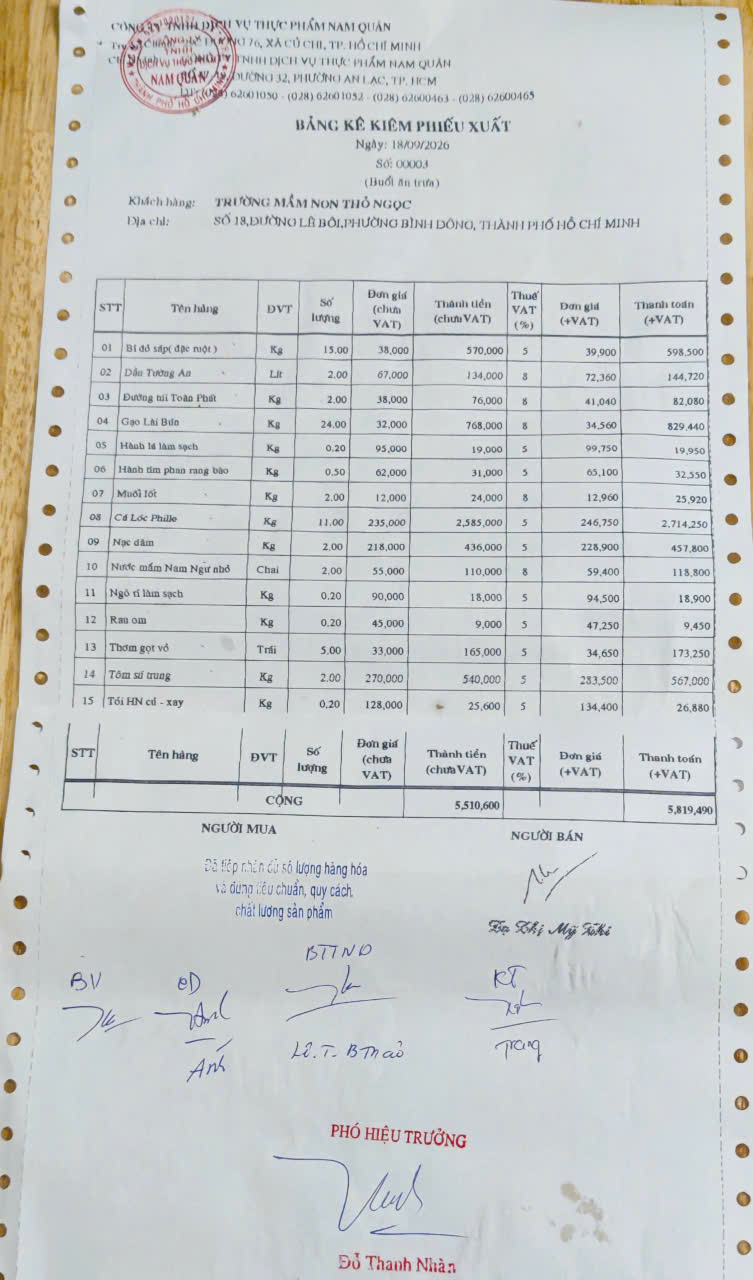 CÔNG TY TNHH DỊCH VỤ THỰC PHẨM NAM QUÂN
ĐƯỜNG 76, XÃ CỦ CHI, TP. HỒ CHÍ MINH
TNHH DỊCH VỤ THỰC PHẨM NAM QUÂN
ĐƯỜNG 32, PHƯỜNG AN LẠC, TP. HCM
(028) 62601050 - (028) 62601052 - (028) 62600463 - (028) 62600465
NAM QUÂN
BẢNG KÊ KIÊM PHIẾU XUẤT
Ngày: 18/09/2026
Số: 00003
(Buổi ăn trưa)
Khách hàng: TRƯỜNG MẦM NON THỎ NGỌC
Địa chỉ: SỐ 18,ĐƯỜNG LÊ BÔI,PHƯỜNG BÌNH ĐÔNG, THÀNH PHỐ HỒ CHÍ MINH
STT Tên hàng ĐVT Số lượng Đơn giá (chưa VAT) Thành tiền (chưa VAT) Thuế VAT (%) Đơn giá (+VAT) Thanh toán (+VAT)
01 Bí đỏ sáp( đặc ruột ) Kg 15.00 38,000 570,000 5 39,900 598,500
02 Dầu Tường An Lít 2.00 67,000 134,000 8 72,360 144,720
03 Đường túi Toàn Phát Kg 2.00 38,000 76,000 8 41,040 82,080
04 Gạo Lài Bún Kg 24.00 32,000 768,000 8 34,560 829,440
05 Hành lá làm sạch Kg 0.20 95,000 19,000 5 99,750 19,950
06 Hành tím phan rang bào Kg 0.50 62,000 31,000 5 65,100 32,550
07 Muối Iốt Kg 2.00 12,000 24,000 8 12,960 25,920
08 Cá Lóc Phille Kg 11.00 235,000 2,585,000 5 246,750 2,714,250
09 Nạc dăm Kg 2.00 218,000 436,000 5 228,900 457,800
10 Nước mắm Nam Ngư nhỏ Chai 2.00 55,000 110,000 8 59,400 118,800
11 Ngò rí làm sạch Kg 0.20 90,000 18,000 5 94,500 18,900
12 Rau om Kg 0.20 45,000 9,000 5 47,250 9,450
13 Thơm gọt vỏ Trái 5.00 33,000 165,000 5 34,650 173,250
14 Tôm sú trung Kg 2.00 270,000 540,000 5 283,500 567,000
15 Tỏi HN củ - xay Kg 0.20 128,000 25,600 5 134,400 26,880
STT Tên hàng ĐVT Số lượng Đơn giá (chưa VAT) Thành tiền (chưa VAT) Thuế VAT (%) Đơn giá (+VAT) Thanh toán (+VAT)
CỘNG 5,510,600 5,819,490
NGƯỜI MUA NGƯỜI BÁN
Đã tiếp nhận đủ số lượng hàng hóa
và đúng tiêu chuẩn, quy cách,
chất lượng sản phẩm
BV BTTND KT
Ánh Lê. T. B Thảo Trang
PHÓ HIỆU TRƯỞNG
Đỗ Thanh Nhàn